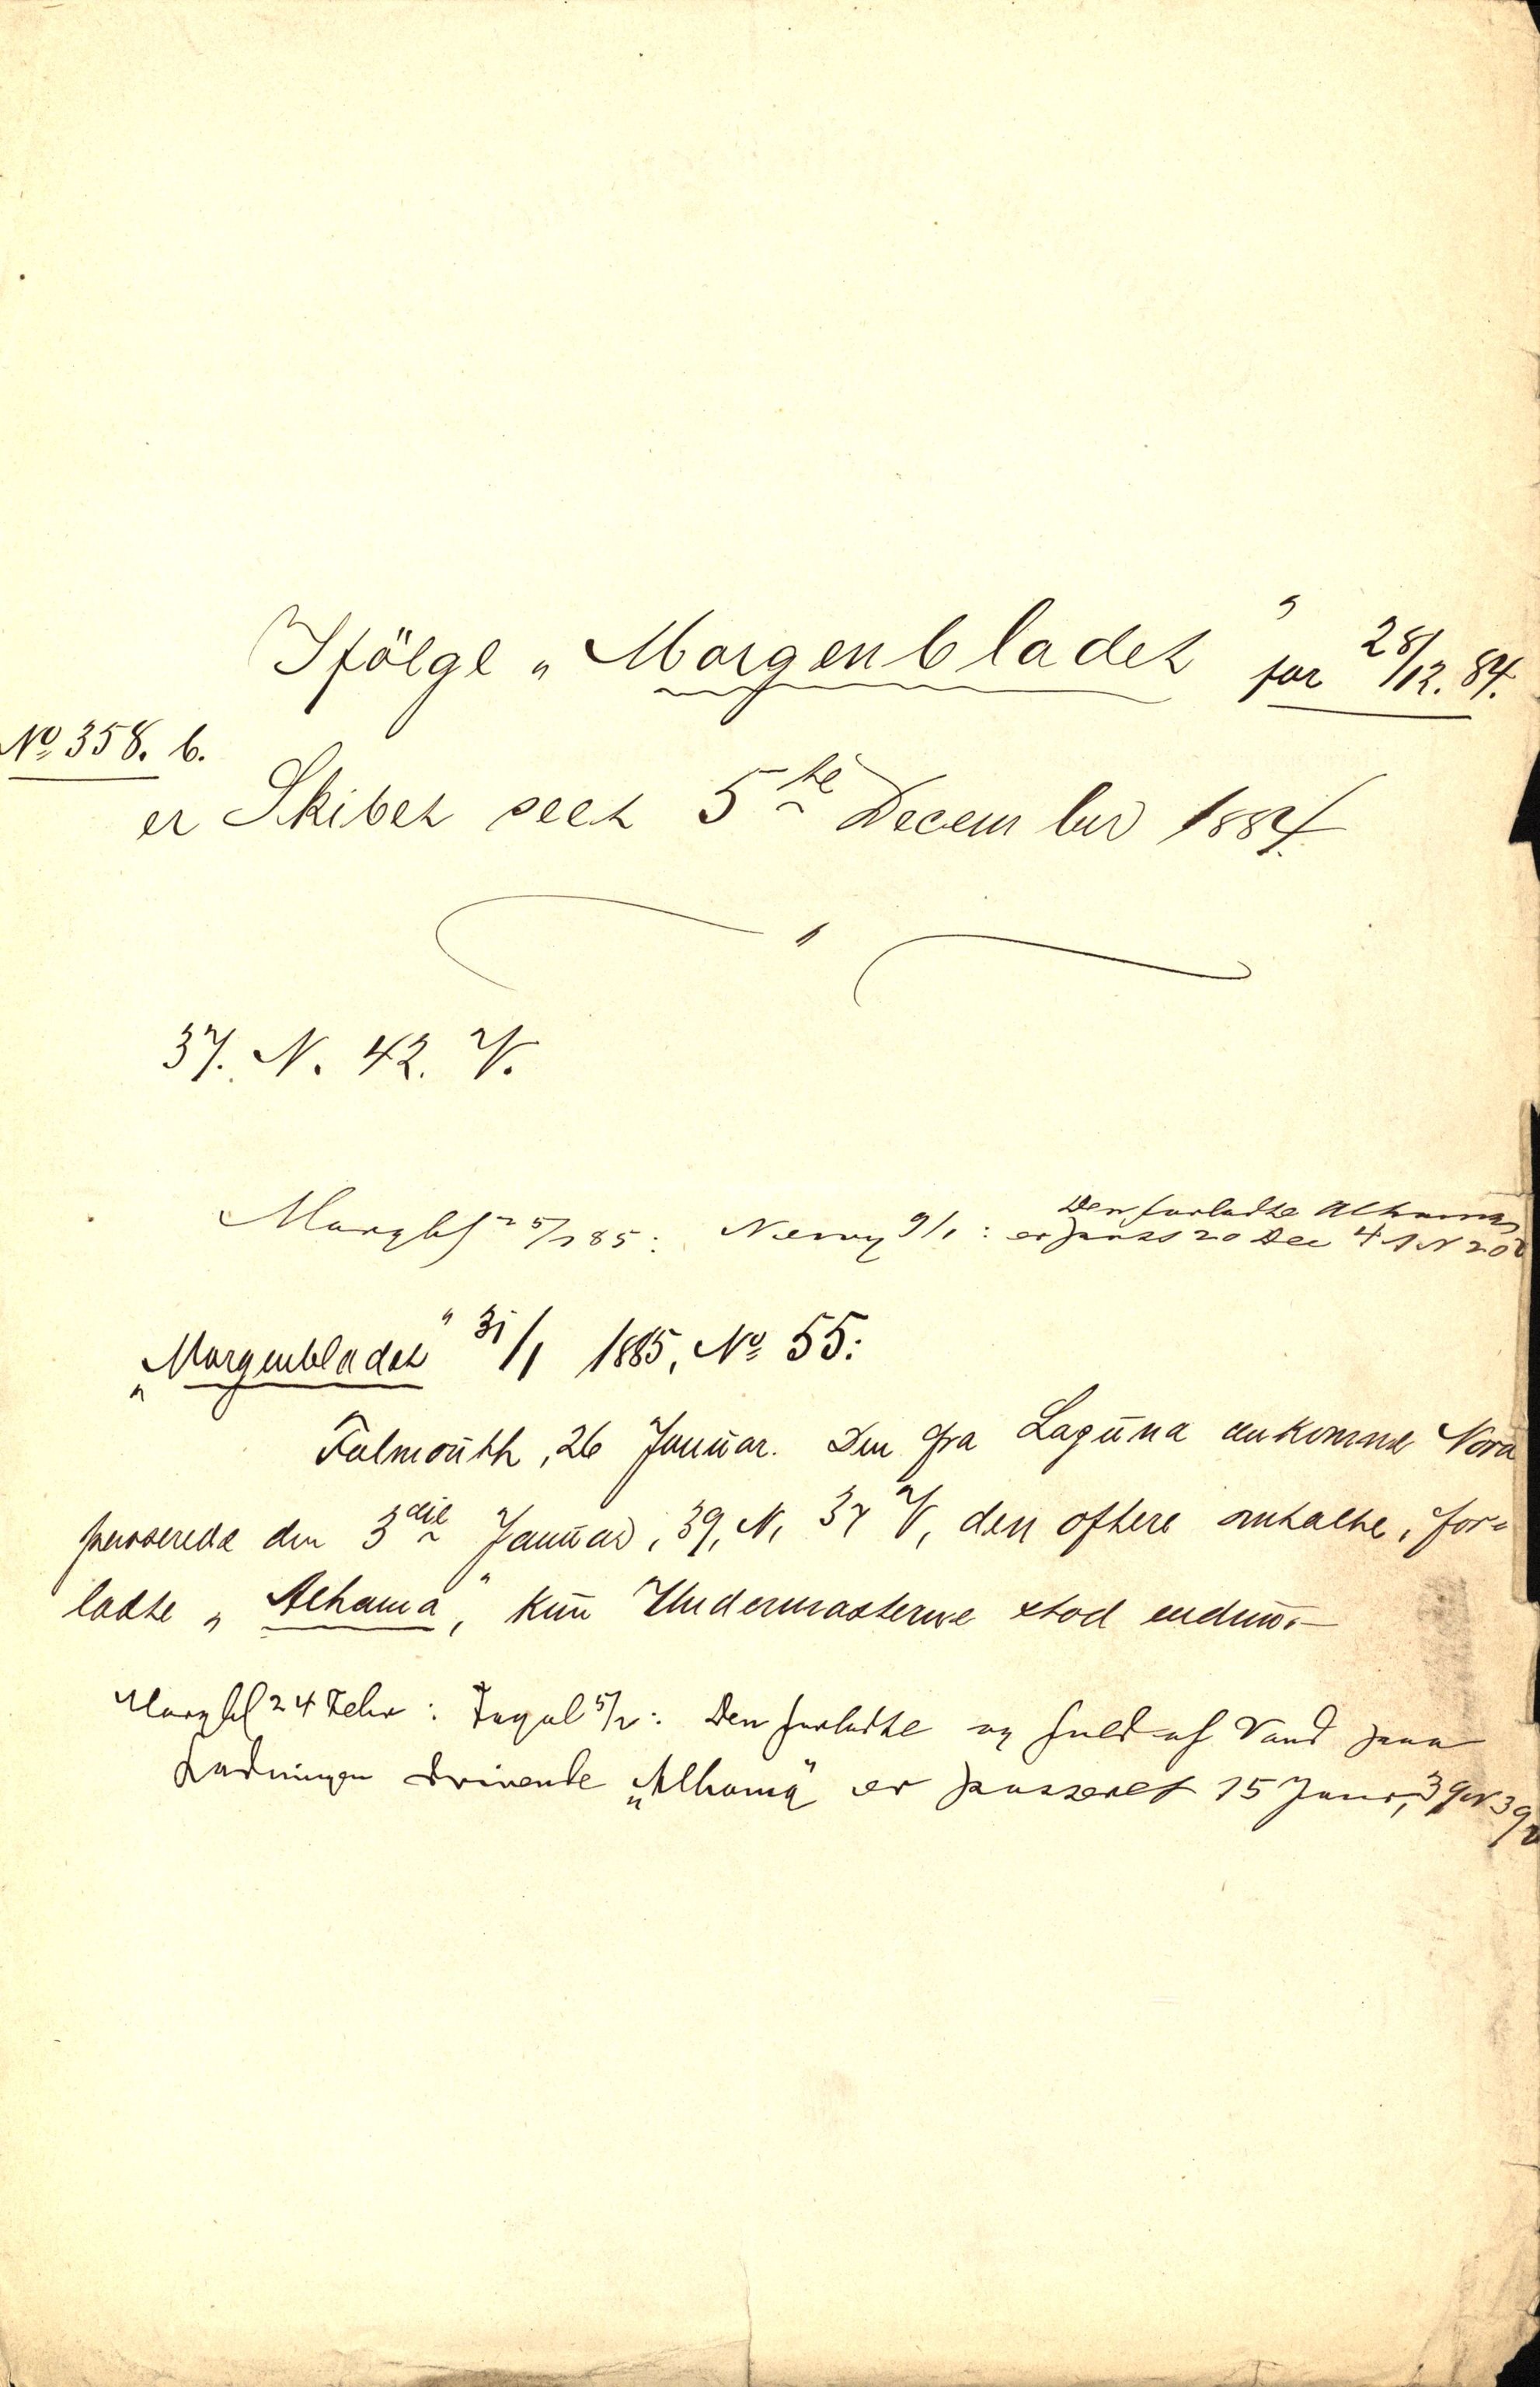 Ifölge „Morgenbladet" for 28/12. 84.
No 358. b.
er Skibet seet 5te December 1884.
37. N. 42. V.
Morgbl 25/1 85: 9/1: Den forladte Alhama
er pass 20 Dec 41 N 20
„Morgenbladet" 31/1 1885, No 55:
Falmouth, 26 Januar. Den fra Laguna ankomne Nora
passerede den 3die Januar, 39, N, 37 V, den oftere omtalte, for=
ladte „Alhama", kun Undermasterne stod endnu.—
Morgbl 24 Febr: Fayal 5/2: Den forladte og fuld af Vand paa
Ladningen drivende „Alhama" er passeret 15 Januar, 39 N 39